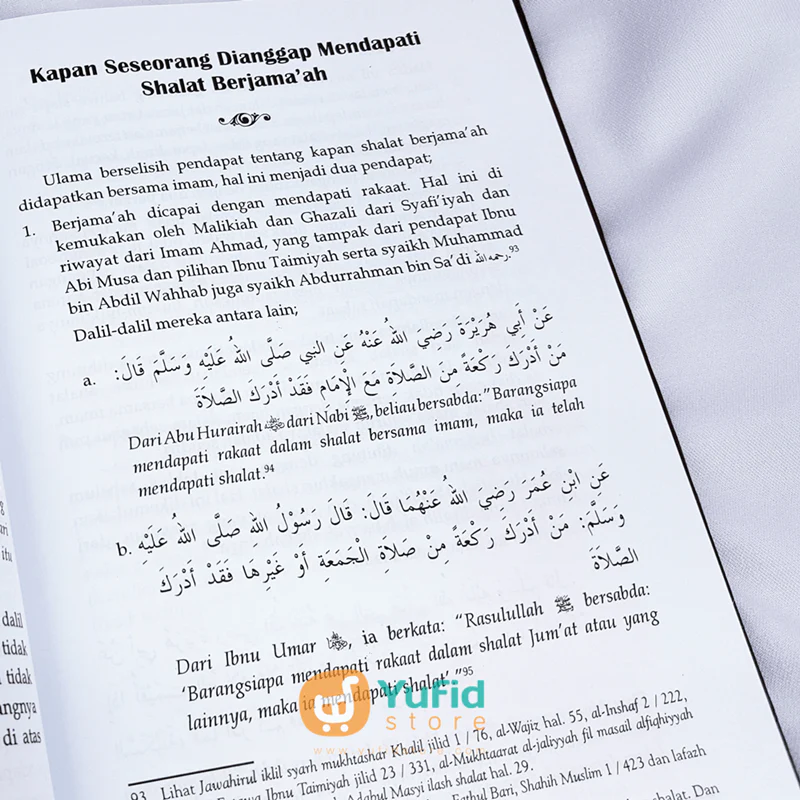 Kapan Seseorang Dianggap Mendapati
Shalat Berjama'ah
Ulama berselisih pendapat tentang kapan shalat berjama'ah
didapatkan bersama imam, hal ini menjadi dua pendapat;
1. Berjama'ah dicapai dengan mendapati rakaat. Hal ini di
kemukakan oleh Malikiah dan Ghazali dari Syafi'iyah dan
riwayat dari Imam Ahmad, yang tampak dari pendapat Ibnu
Abi Musa dan pilihan Ibnu Taimiyah serta syaikh Muhammad
bin Abdil Wahhab juga syaikh Abdurrahman bin Sa'di رحمه الله.93
Dalil-dalil mereka antara lain;
a. عَنْ أَبِي هُرَيْرَةَ رَضِيَ اللهُ عَنْهُ عَنِ النبي صَلَّى اللهُ عَلَيْهِ وَسَلَّمَ قَالَ:
مَنْ أَدْرَكَ رَكْعَةً مِنَ الصَّلَاةِ مَعَ الْإِمَامِ فَقَدْ أَدْرَكَ الصَّلَاةَ
Dari Abu Hurairah dari Nabi ﷺ, beliau bersabda:"Barangsiapa
mendapati rakaat dalam shalat bersama imam, maka ia telah
mendapati shalat.94
b. عَنِ ابْنِ عُمَرَ رَضِيَ اللهُ عَنْهُمَا قَالَ: قَالَ رَسُوْلُ اللهِ صَلَّى اللهُ عَلَيْهِ
وَسَلَّمَ: مَنْ أَدْرَكَ رَكْعَةً مِنْ صَلَاةِ الْجُمُعَةِ أَوْ غَيْرِهَا فَقَدْ أَدْرَكَ
الصَّلَاةَ
Dari Ibnu Umar , ia berkata: "Rasulullah ﷺ bersabda:
'Barangsiapa mendapati rakaat dalam shalat Jum'at atau yang
lainnya, maka ia mendapati shalat'."95
93 Lihat Jawahirul iklil syarh mukhtashar Khalil jilid 1 / 76, al-Wajiz hal. 55, al-Inshaf 2 / 222,
Ibnu Taimiyah jilid 23 / 331, al-Mukhtaarat al-jaliyyah fil masail alfiqhiyyah
Masyi ilash shalat hal. 29.
Fathul Bari, Shahih Muslim 1 / 423 dan lafazh
shalat. Dan
itu
dalil
tidak
tidak
angnya
di atas
Yufid
store